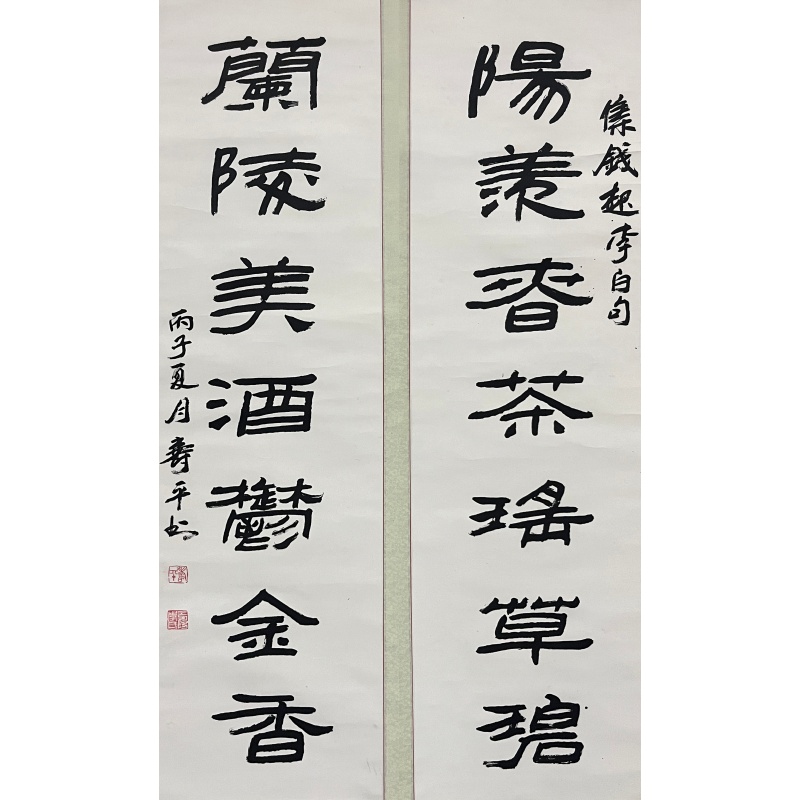 集錢起李白句
陽羨春茶瑤草碧
蘭陵美酒鬱金香
丙子夏月壽平書